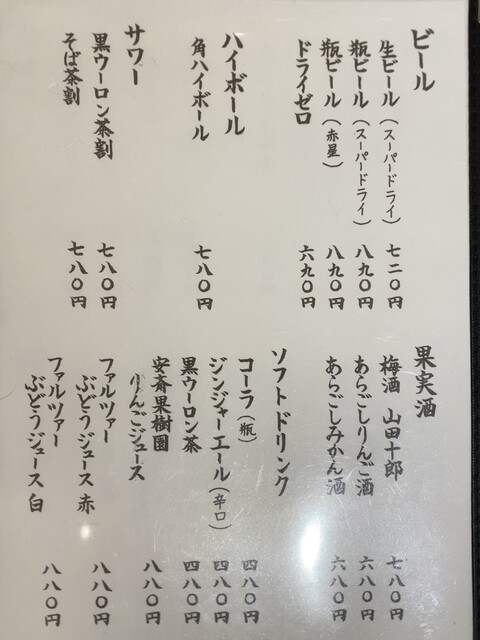 ビール
生ビール（スーパードライ） 七二〇円
瓶ビール（スーパードライ） 八九〇円
瓶ビール（赤星） 八九〇円
ドライゼロ 六九〇円
ハイボール
角ハイボール 七八〇円
サワー
黒ウーロン茶割 七八〇円
そば茶割 七八〇円
果実酒
梅酒 山田十郎 七八〇円
あらごしりんご酒 六八〇円
あらごしみかん酒 六八〇円
ソフトドリンク
コーラ（瓶） 四八〇円
ジンジャーエール（辛口） 四八〇円
黒ウーロン茶 四八〇円
安斉果樹園
りんごジュース 八八〇円
ファルツァー
ぶどうジュース 赤 八八〇円
ファルツァー
ぶどうジュース 白 八八〇円